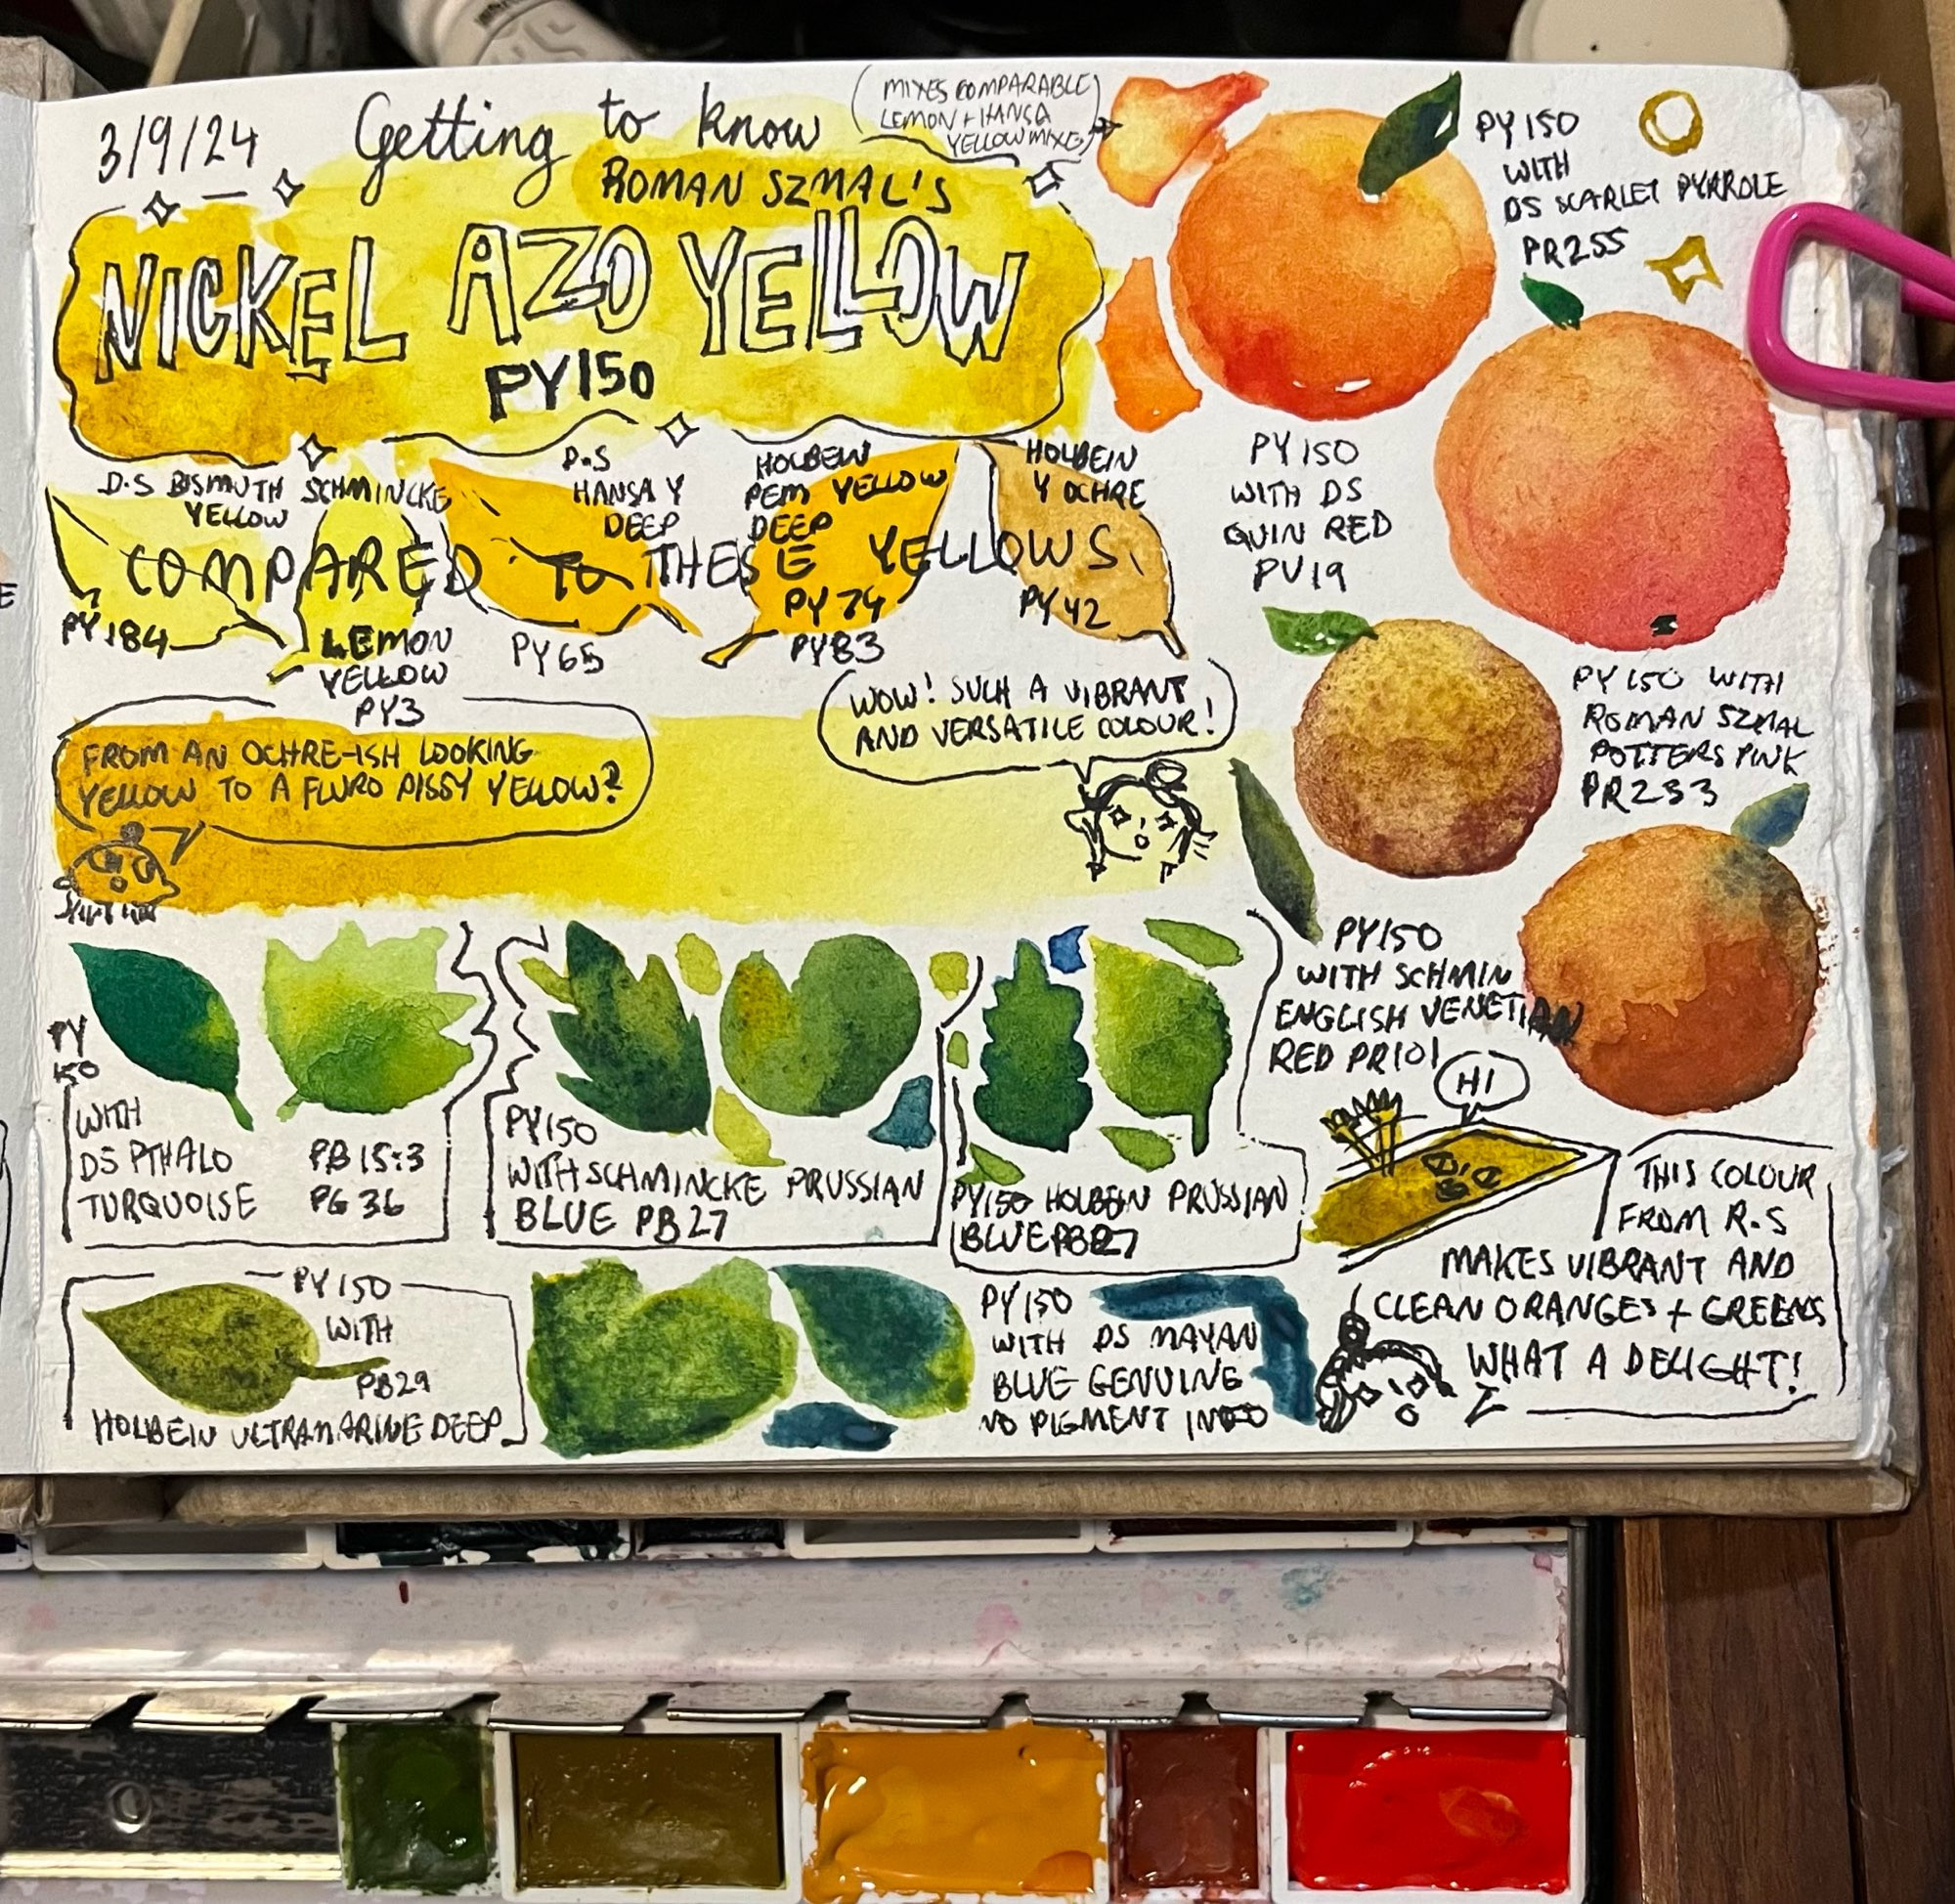 3/9/24
Getting to know
(MIXES COMPARABLE
LEMON + HANSA
YELLOW MIXES)
ROMAN SZMAL'S
NICKEL AZO YELLOW
PY150
D.S BISMUTH
YELLOW
PY184
SCHMINCKE
LEMON
YELLOW
PY3
D.S
HANSA Y
DEEP
PY65
HOLBEIN
PEM YELLOW
DEEP
PY74
PY83
HOLBEIN
Y OCHRE
PY42
COMPARED TO THESE YELLOWS
FROM AN OCHRE-ISH LOOKING
YELLOW TO A FLURO PISSY YELLOW?
WOW! SUCH A VIBRANT
AND VERSATILE COLOUR!
PY150
WITH
DS SCARLET PYRROLE
PR255
PY150
WITH DS
QUIN RED
PV19
PY150 WITH
ROMAN SZMAL
POTTERS PINK
PR233
PY150
WITH SCHMIN
ENGLISH VENETIAN
RED PR101
PY
150
WITH
DS PTHALO
TURQUOISE
PB15:3
PG36
PY150
WITH SCHMINCKE PRUSSIAN
BLUE PB27
PY150 HOLBEIN PRUSSIAN
BLUE PB27
HI
THIS COLOUR
FROM R.S
MAKES VIBRANT AND
CLEAN ORANGES + GREENS
WHAT A DELIGHT!
PY150
WITH
PB29
HOLBEIN ULTRAMARINE DEEP
PY150
WITH DS MAYAN
BLUE GENUINE
NO PIGMENT INFO